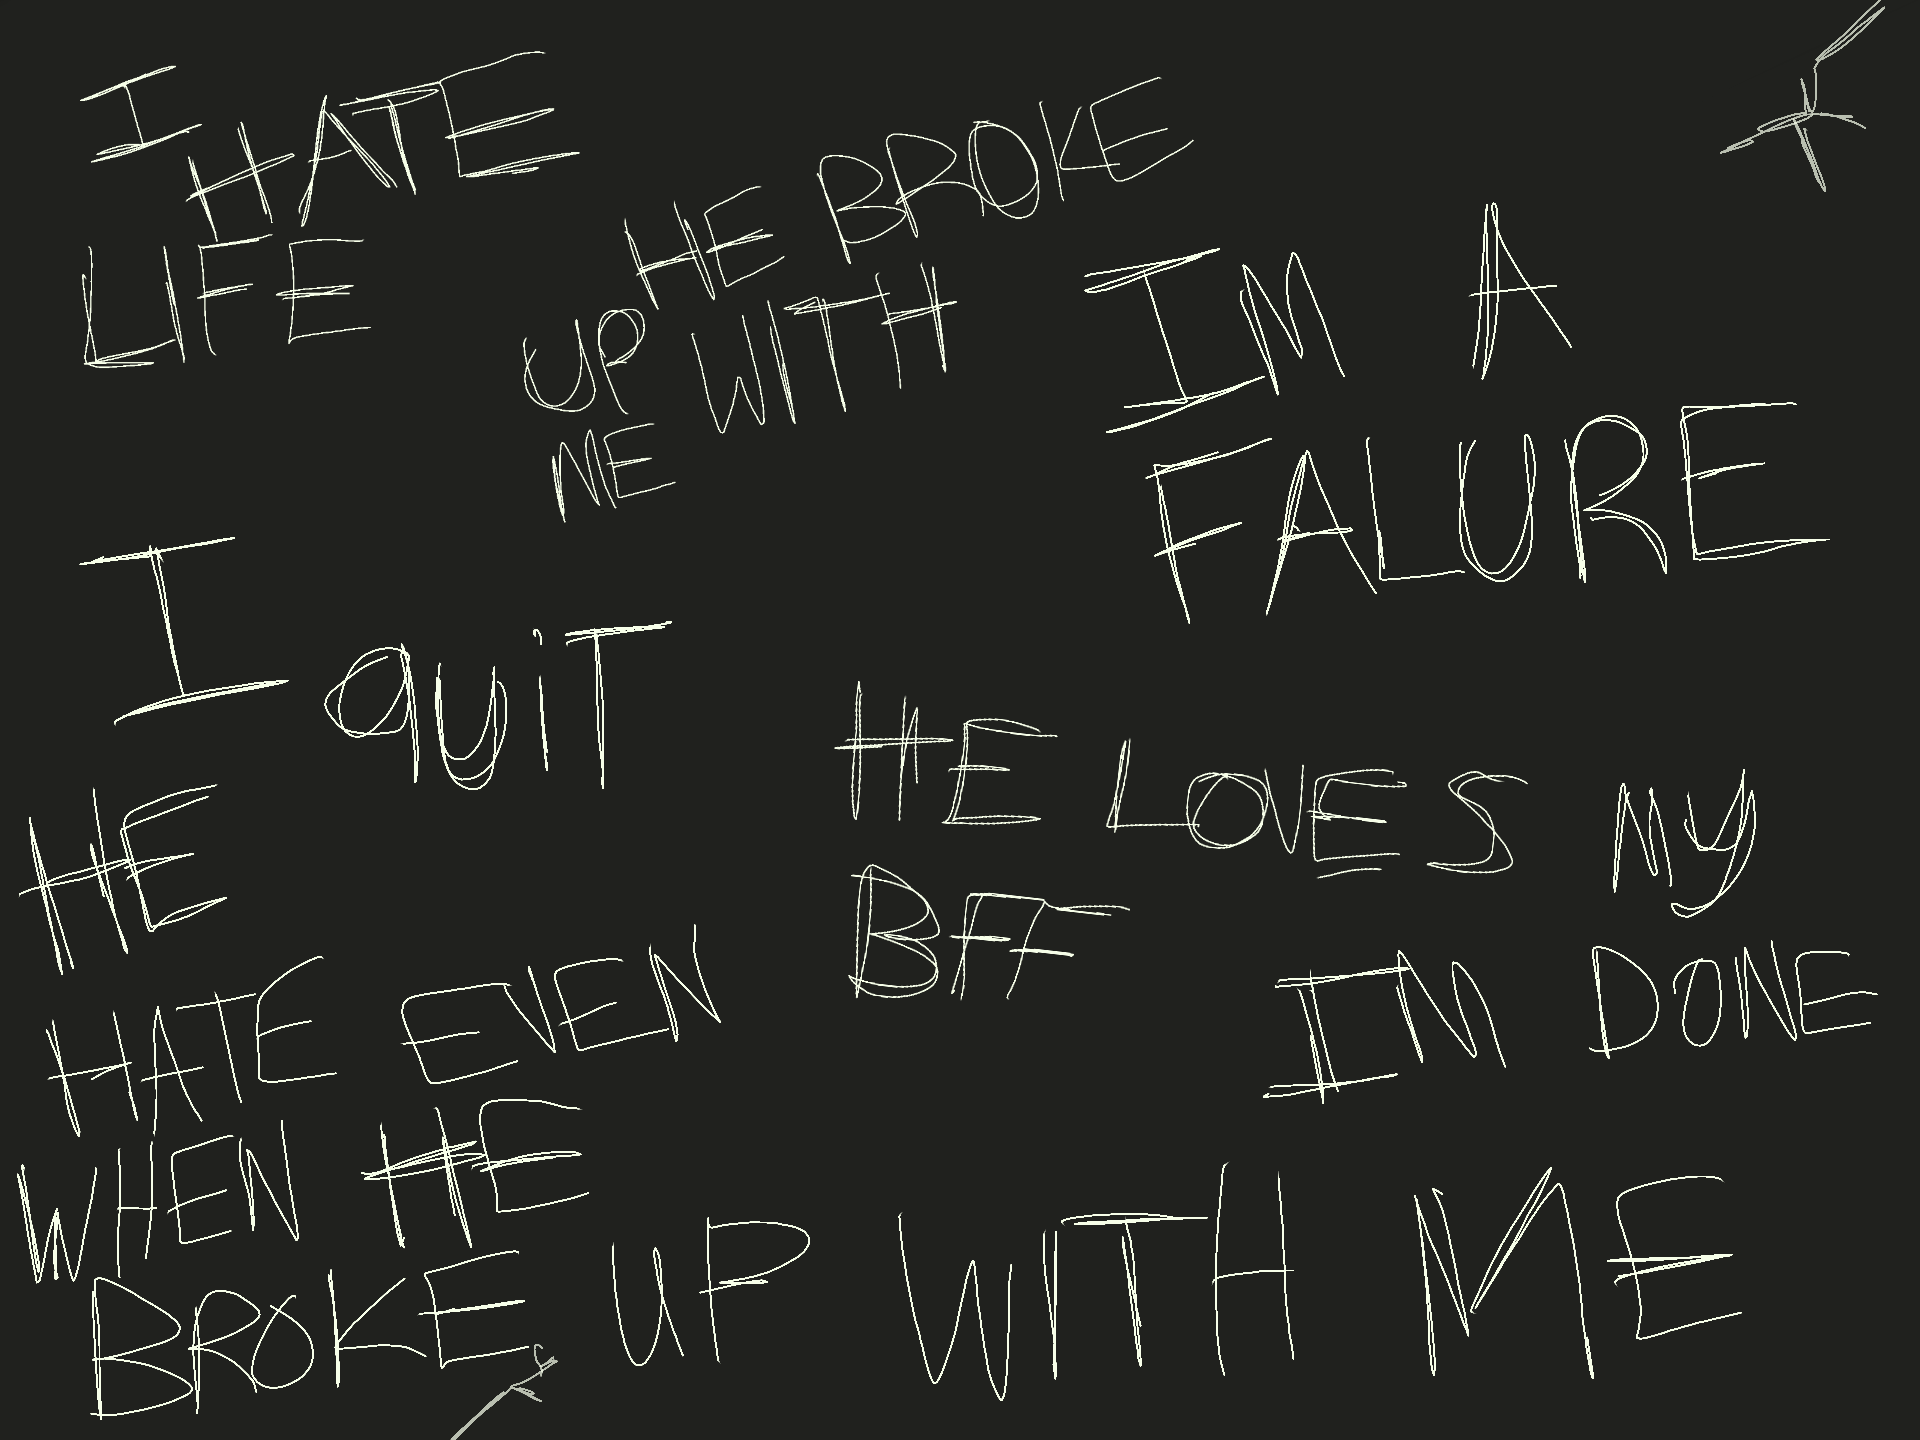 I HATE
LIFE
HE BROKE
UP WITH
ME
IM A
FALURE
I quiT
HE LOVES My
BFF
IM DONE
HE
HATE EVEN
WHEN HE
BROKE UP WITH ME